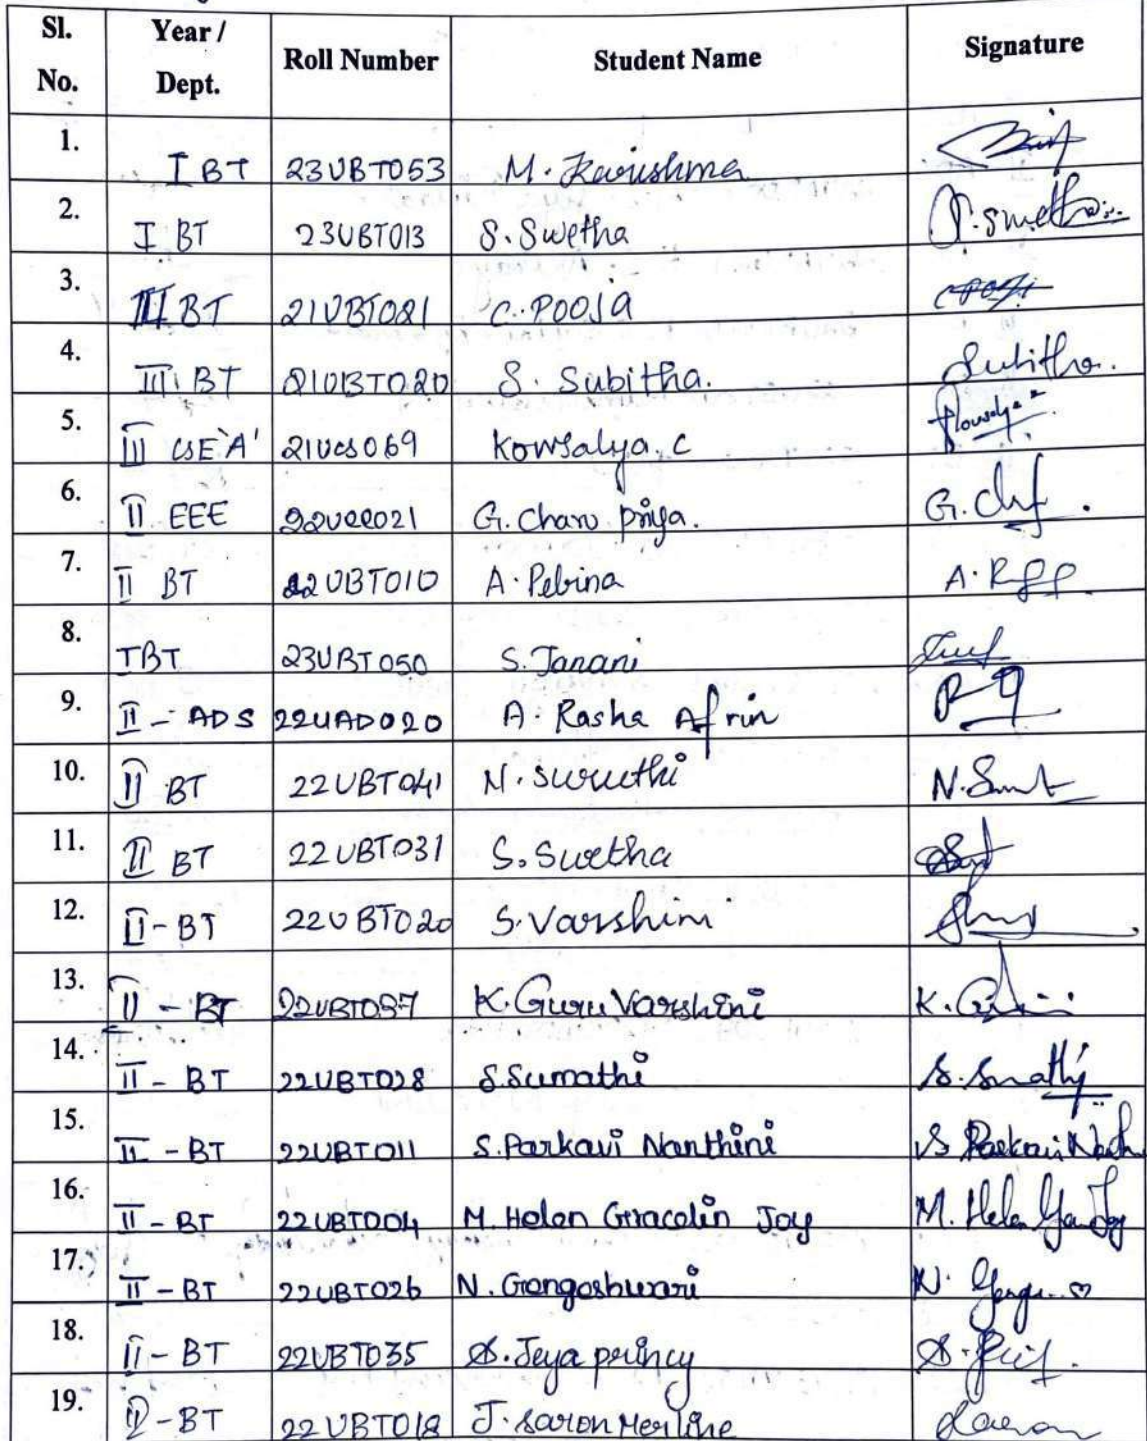 Sl. No. Year / Dept. Roll Number Student Name Signature
1. I BT 23UBT053 M. Karishma
2. I BT 23UBT013 S. Swetha S. Swetha
3. III BT 21UBT021 C. POOJA
4. III BT 21UBT020 S. Subitha. Subitha.
5. III CSE 'A' 21UCS069 Kowsalya. C Kowsalya
6. II EEE 22UEE021 G. Charu priya. G.
7. II BT 22UBT010 A. Pebina A.
8. I BT 23UBT050 S. Janani
9. II - ADS 22UAD020 A. Rasha Afrin
10. II BT 22UBT041 N. Suruthi N.
11. II BT 22UBT031 S. Swetha
12. II - BT 22UBT020 S. Varshini
13. II - BT K. Guru Varshini K.
14. II - BT 22UBT028 S. Sumathi S.
15. II - BT 22UBT011 S. Parkavi Nanthini S Parkavi
16. II - BT 22UBT004 M. Helan Gracelin Joy M. Helan Joy
17. II - BT 22UBT026 N. Gangeshwari N.
18. II - BT 22UBT035 S. Jeya princy
19. II - BT 22UBT018 J. Saron Merline Saron